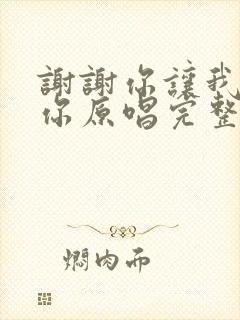 謝謝你讓我
你原唱完整
燜肉而